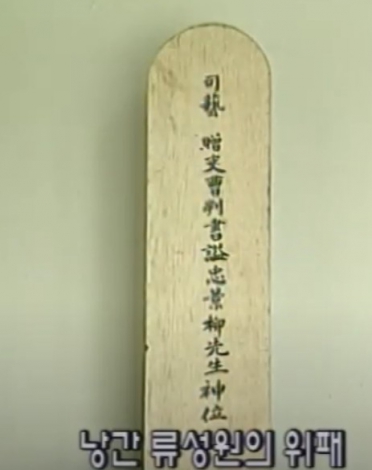 司藝 贈吏曹判書諡忠景柳先生神位
낭간 류성원의 위패